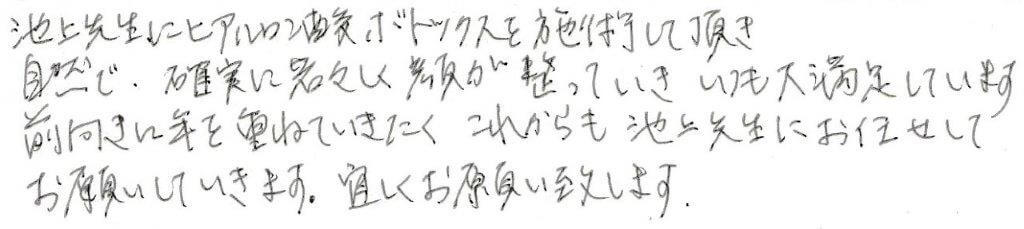 池上先生にヒアルロン酸ボトックスを施行して頂き
自然で、確実に若々しく顔が整っていき いつも大満足しています
前向きに年を重ねていきたく これからも 池上先生にお任せして
お願いしていきます。宜しくお願い致します.